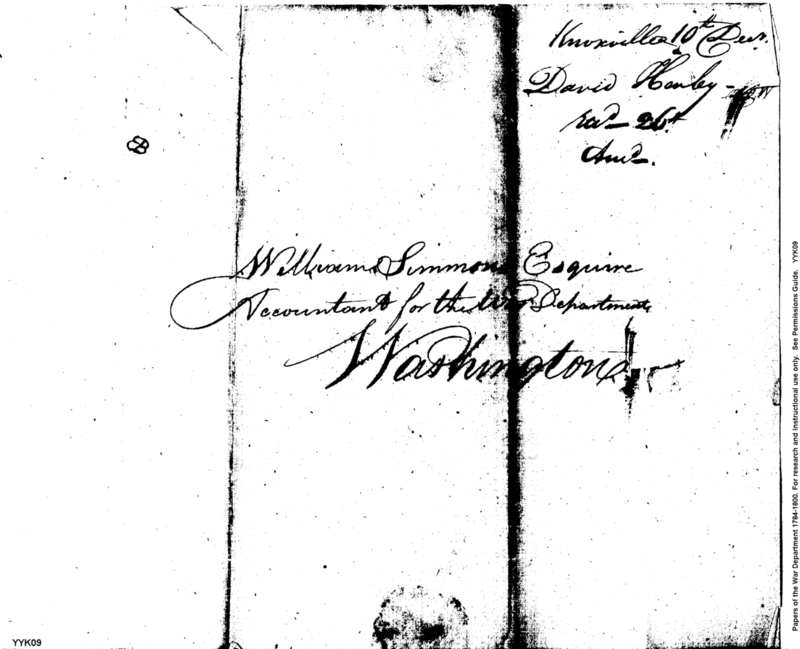 Knoxville 10th Decr.
David Henley
recd 26th
Ansd.
William Simmons Esquire
Accountant for the War Department
Washington
YYK09
Papers of the War Department 1784-1800. For research and instructional use only. See Permissions Guide. YYK09